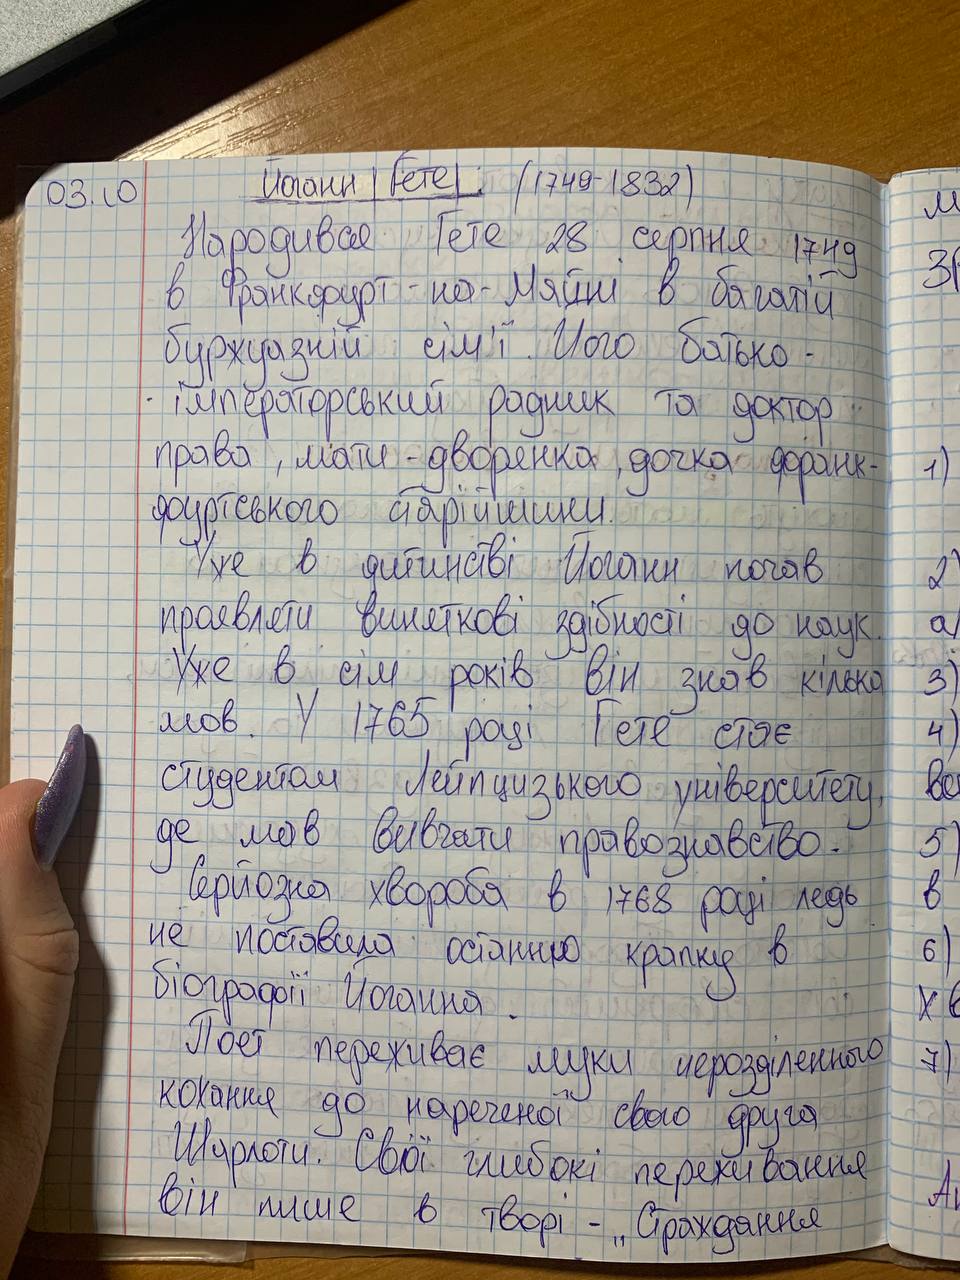 03.10
Йоганн Гете. (1749-1832)
Народився Гете 28 серпня 1749
в Франкфурт-на-Майні в багатій
буржуазній сім'ї. Його батько -
імператорський радник та доктор
права, мати - дворянка, дочка франк-
фуртського старійшини.
Уже в дитинстві Йоганн почав
проявляти виняткові здібності до наук.
Уже в сім років він знав кілька
мов. У 1765 році Гете стає
студентом Лейпцизького університету,
де мав вивчати правознавство.
Серйозна хвороба в 1768 році ледь
не поставила останню крапку в
біографії Йоганна.
Поет переживає муки нерозділенного
кохання до нареченої свого друга
Шарлоти. Свої глибокі переживання
він пише в творі - „Страждання
1)
2)
3)
4)
5)
в
6)
7)